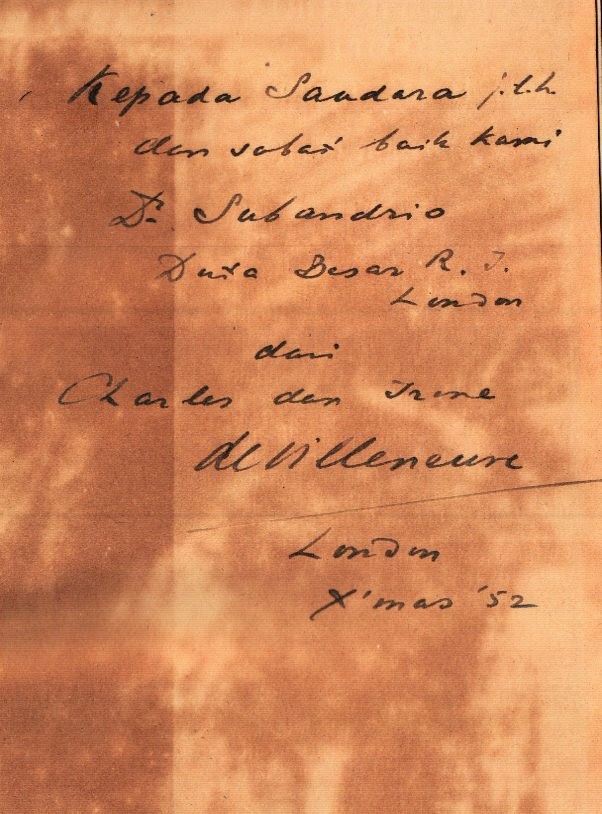 Kepada Saudara j.t.h.
dan sobat baik kami
Dr. Subandrio
Duta Besar R.I.
London
dari
Charles dan Irene
de Villeneuve
London
X'mas '52